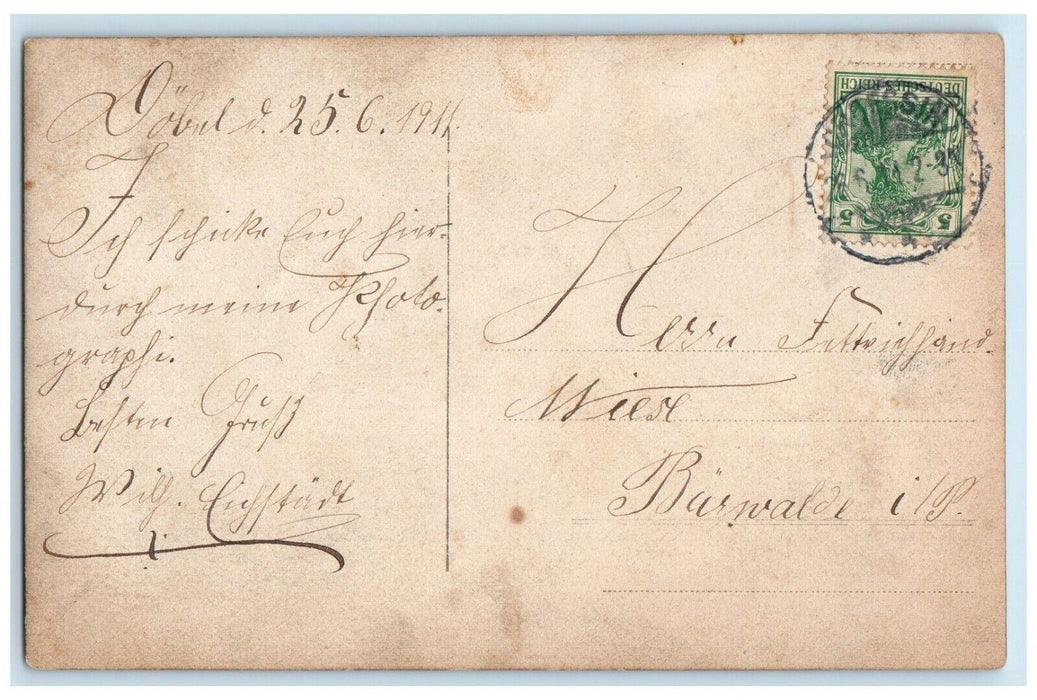 Döbel d. 25.6.1911.
Ich schicke Euch hier-
durch meine Photo-
graphi.
Besten Gruß
Wilh. Eichstädt
DEUTSCHES REICH
5 5
2-3N
Herrn
Bärwalde i/P.